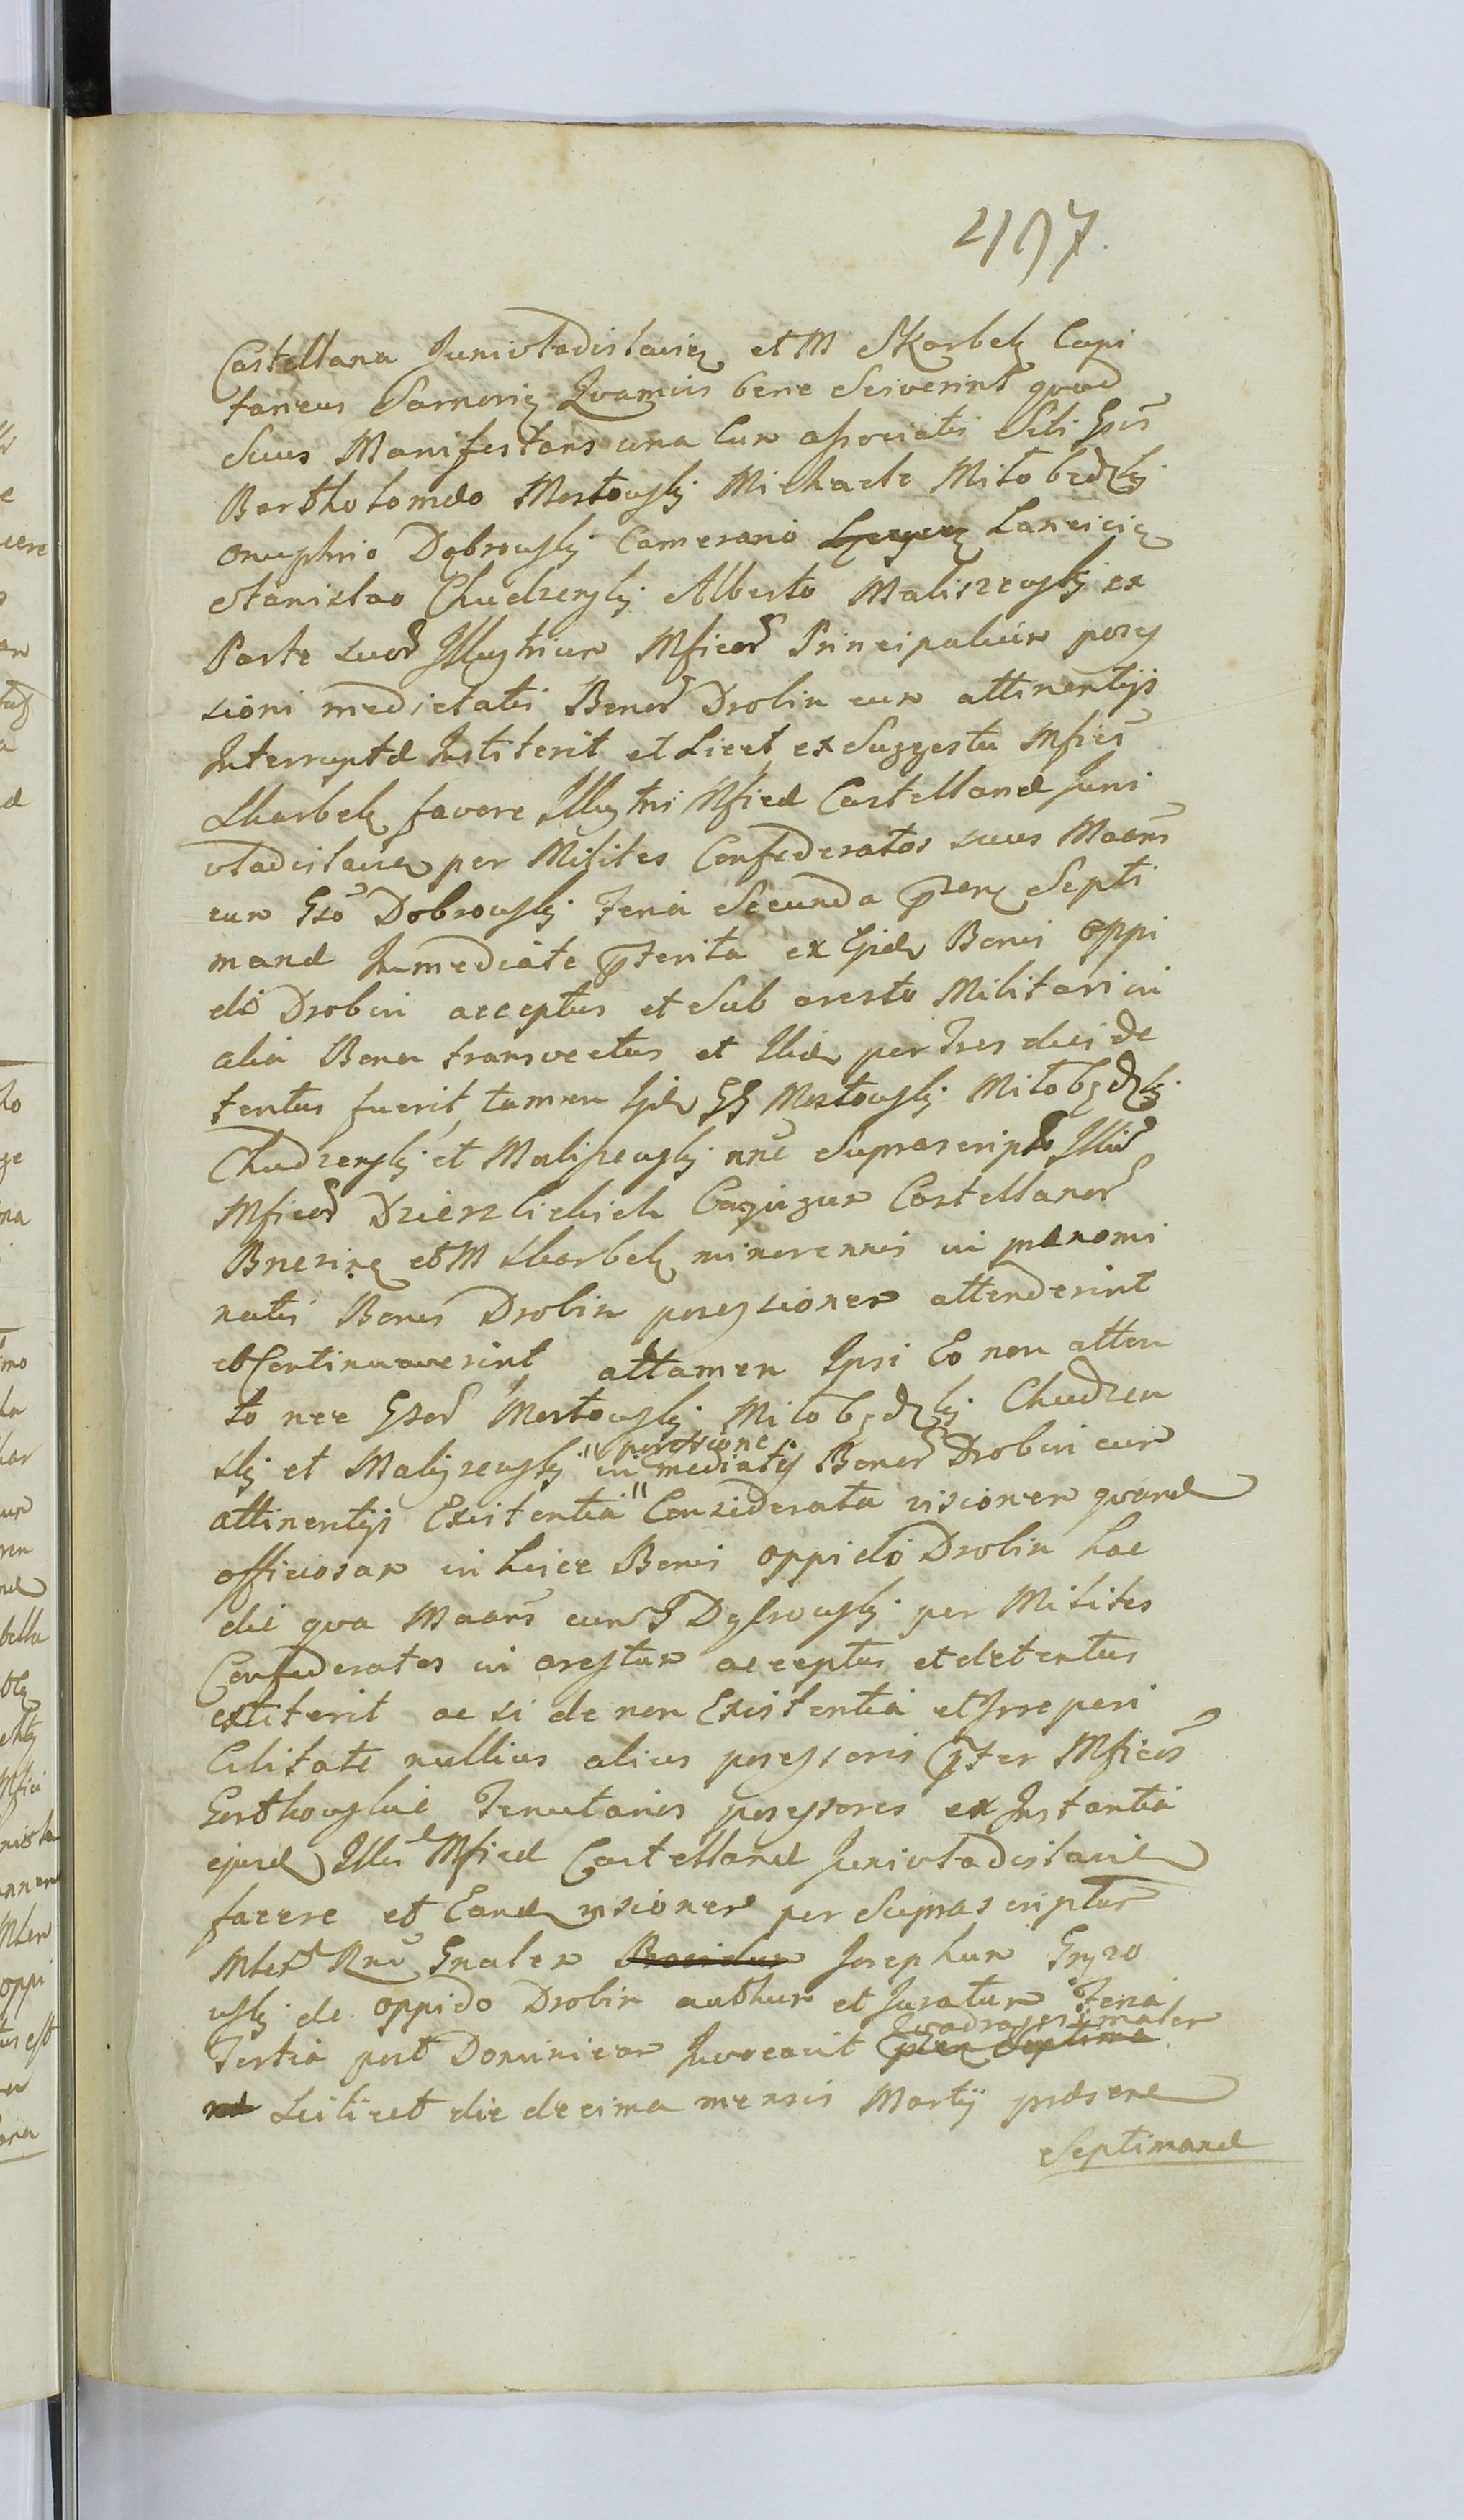 497.
Castellana Junivladislaviɇ et M Skarbek Capi
taneus Sarnoviɇ Quamvis bene Sciverint quod
Suus Manifestans una Cum associatis Sibi Gsis
Bartholomæo Mostowskj Michaele Miłobędzkj
onuphrio Dąbrowskj Camerario Lanciciɇ
Stanislao Chudzenskj Alberto Maliszewskj ex
Parte suor Illustrium Mficor Principalium posses
sioni medietatis Bonor Drobin cum attinentijs
Interruptæ Institerit et Licet ex Suggestu Mfici
Skarbek favore Illustri Mficæ Castellanæ Juni
vladislaviæ per Milites Confederatos suus Maans
cum Gso Dobrowskj Feria Secunda pzen Septi
manæ Immediate pterita ex Gjd Bonis oppi
di Drobin acceptus et Sub aresto Militari in
alia Bona transvectus et Ibid per Tres dies de
tentus fuerit, tamen Ijd GG Mostowskj Miłobędzkj
Chudzenskj et Maliszewskj nne Suprascripto Illium
Mficor Dzierzbickich Conjugum Castellanor
Brzesinɇ et M Skarbek minorennis in prænomi
natis Bonis Drobin possessionem attenderint
et Continuaverint attamen Ipsi Eo non atten
to nec Gsor Mostowskj Miłobędzkj Chudzen
skj et Maliszewskj "in possessione mediatis Bonor Drobin cum
attinentijs Existentia" Considerata visionem quand
officiosam in hisce Bonis oppidi Drobin hac
die qva Maans cum G Dąbrowskj per Milites
Confederatos in arestum acceptus et detentus
extiterit ac si de non Existentia et Irreperi
bilitate nullius alius possessoris pter Mficos
Tenutarios possessores ex Instantia
ejusd Illis Mficæ Castellanæ Junivladislaviæ
facere et Eand visionem per Suprascriptum
Mtem Rni Gnalem Josephum Gryzo
wskj de oppido Drobin authum et Juratum Feria
Tertia post Dominicam Invocavit Quadragesimalem
scilicet die decima mensis Martij præsene
Septimanæ